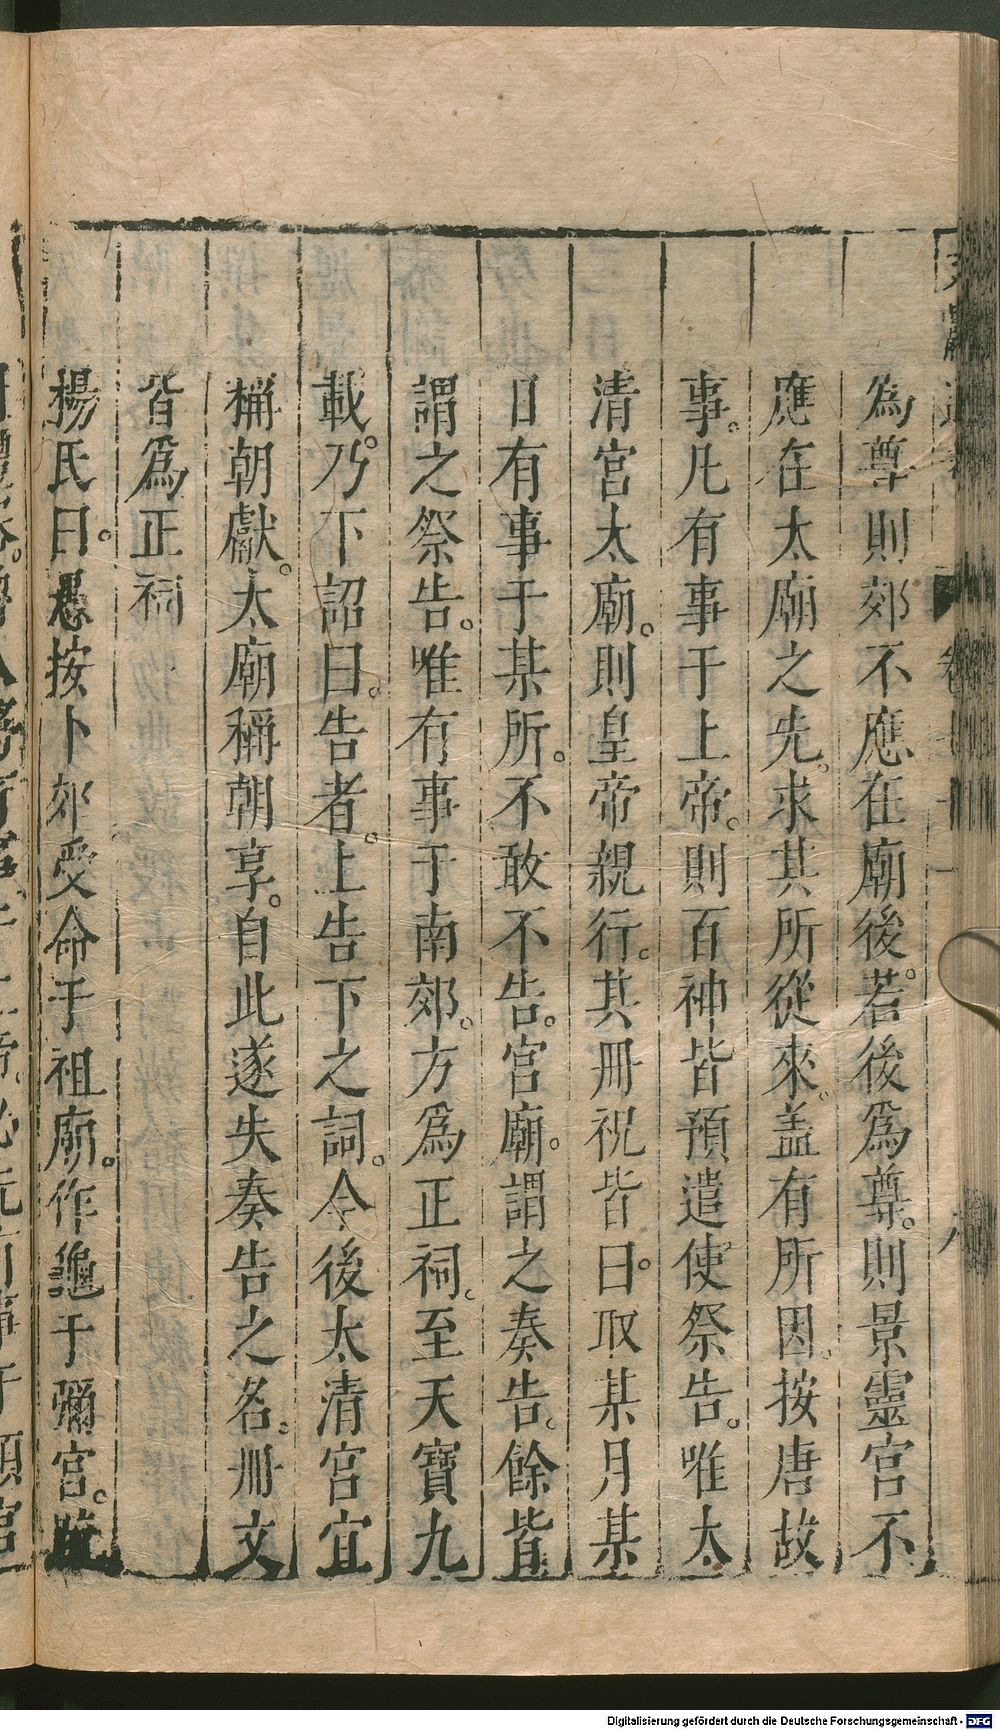 為尊則郊不應在廟後。若後爲尊。則景靈宮不
應在太廟之先。求其所從來。盖有所因。按唐故
事。凡有事于上帝。則百神皆預遣使祭告。唯太
清宮太廟。則皇帝親行。其冊祝皆曰。取某月某
日有事于某所。不敢不告。宮廟。謂之奏告。餘皆
謂之祭告。唯有事于南郊。方爲正祠。至天寶九
載。乃下詔曰。告者。上告下之詞。今後太清宮宜
稱朝獻。太廟稱朝享。自此遂失奏告之名。冊文
皆爲正祠
楊氏曰。愚按卜郊受命于祖廟。作龜于彌宮。
Digitalisierung gefördert durch die Deutsche Forschungsgemeinschaft - DFG